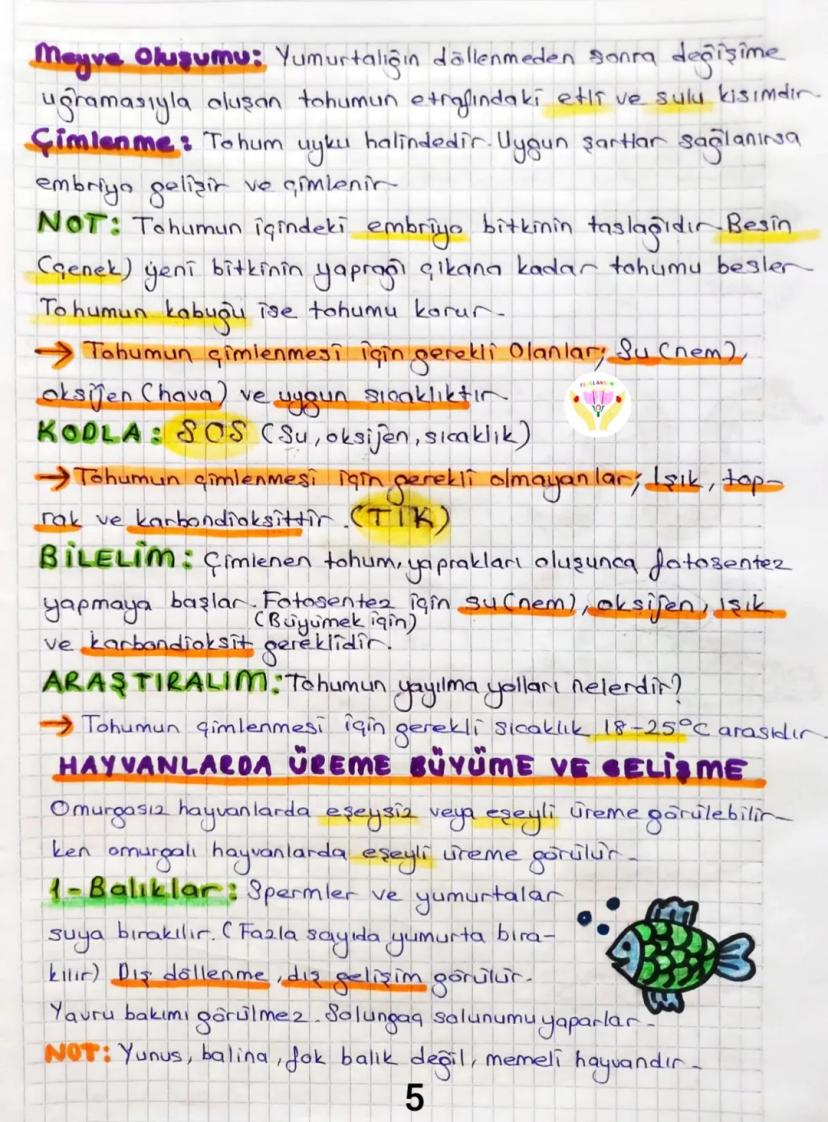 Meyve Oluşumu: Yumurtalığın döllenmeden sonra değişime
uğramasıyla oluşan tohumun etrafındaki etli ve sulu kısımdır.
Çimlenme: Tohum uyku halindedir. Uygun şartlar sağlanırsa
embriyo gelişir ve çimlenir.
NOT: Tohumun içindeki embriyo bitkinin taslağıdır. Besin
(çenek) yeni bitkinin yaprağı çıkana kadar tohumu besler
Tohumun kabuğu ise tohumu korur.
→ Tohumun çimlenmesi için gerekli Olanlar; Su (nem),
oksijen (hava) ve uygun sıcaklıktır.
KODLA: SOS (Su, oksijen, sıcaklık)
→ Tohumun çimlenmesi için gerekli olmayanlar; Işık, top-
rak ve karbondioksittir. (TIK)
BİLELİM: Çimlenen tohum, yaprakları oluşunca fotosentez
yapmaya başlar. Fotosentez için su (nem), oksijen, ışık
(Büyümek için)
ve karbondioksit gereklidir.
ARAŞTIRALIM: Tohumun yayılma yolları nelerdir?
→ Tohumun çimlenmesi için gerekli sıcaklık 18-25°C arasıdır.
HAYVANLARDA ÜREME BÜYÜME VE GELİŞME
Omurgasız hayvanlarda eşeysiz veya eşeyli üreme görülebilir-
ken omurgalı hayvanlarda eşeyli üreme görülür.
1- Balıklar: Spermler ve yumurtalar
suya bırakılır. (Fazla sayıda yumurta bıra-
kılır) Dış döllenme, dış gelişim görülür.
Yavru bakımı görülmez. Solungaç solunumu yaparlar.
NOT: Yunus, balina, fok balık değil, memeli hayvandır.
5